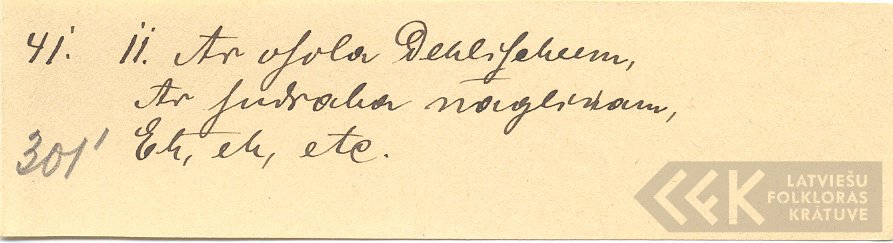 41. 11. Ar osola Dehlischeem,
Ar sudraba nagliņam,
Eh, eh, etc.
301'
LATVIEŠU
FOLKLORAS
KRĀTUVE